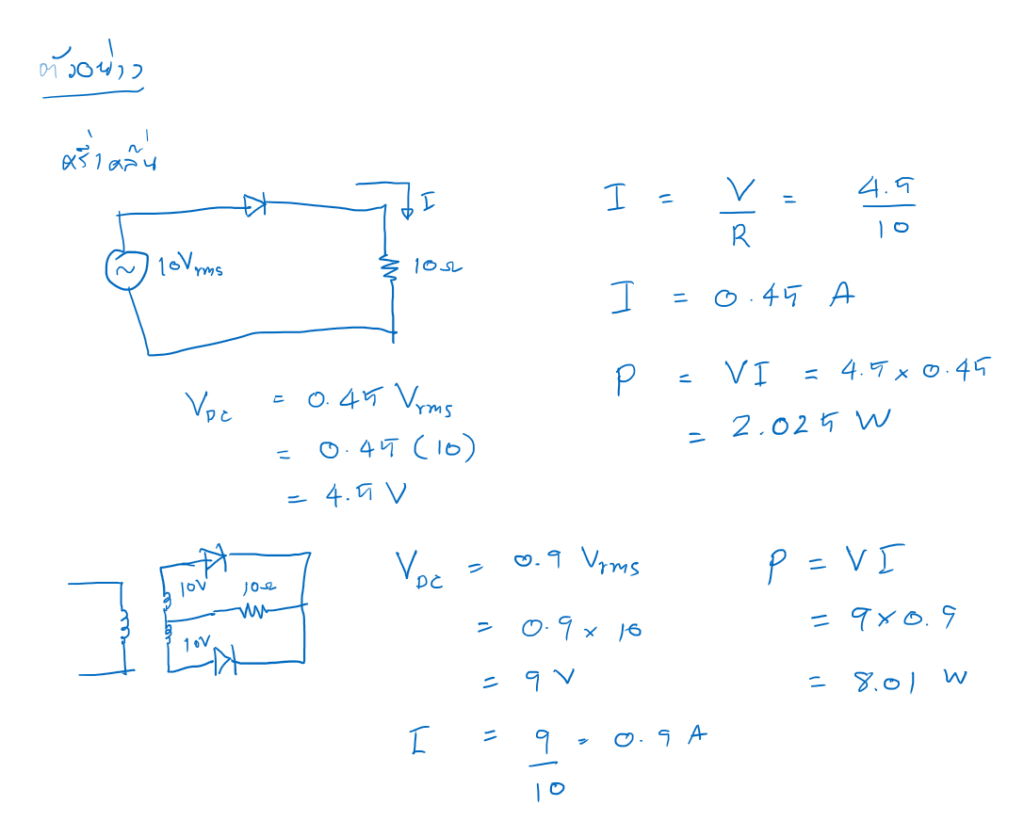 ตัวอย่าง
ครึ่งคลื่น
I
10Vrms
10Ω
VDC = 0.45 Vrms
= 0.45 (10)
= 4.5 V
I = V/R = 4.5/10
I = 0.45 A
P = VI = 4.5 x 0.45
= 2.025 W
10V
10Ω
10V
VDC = 0.9 Vrms
= 0.9 x 10
= 9 V
I = 9/10 = 0.9 A
P = VI
= 9 x 0.9
= 8.01 W